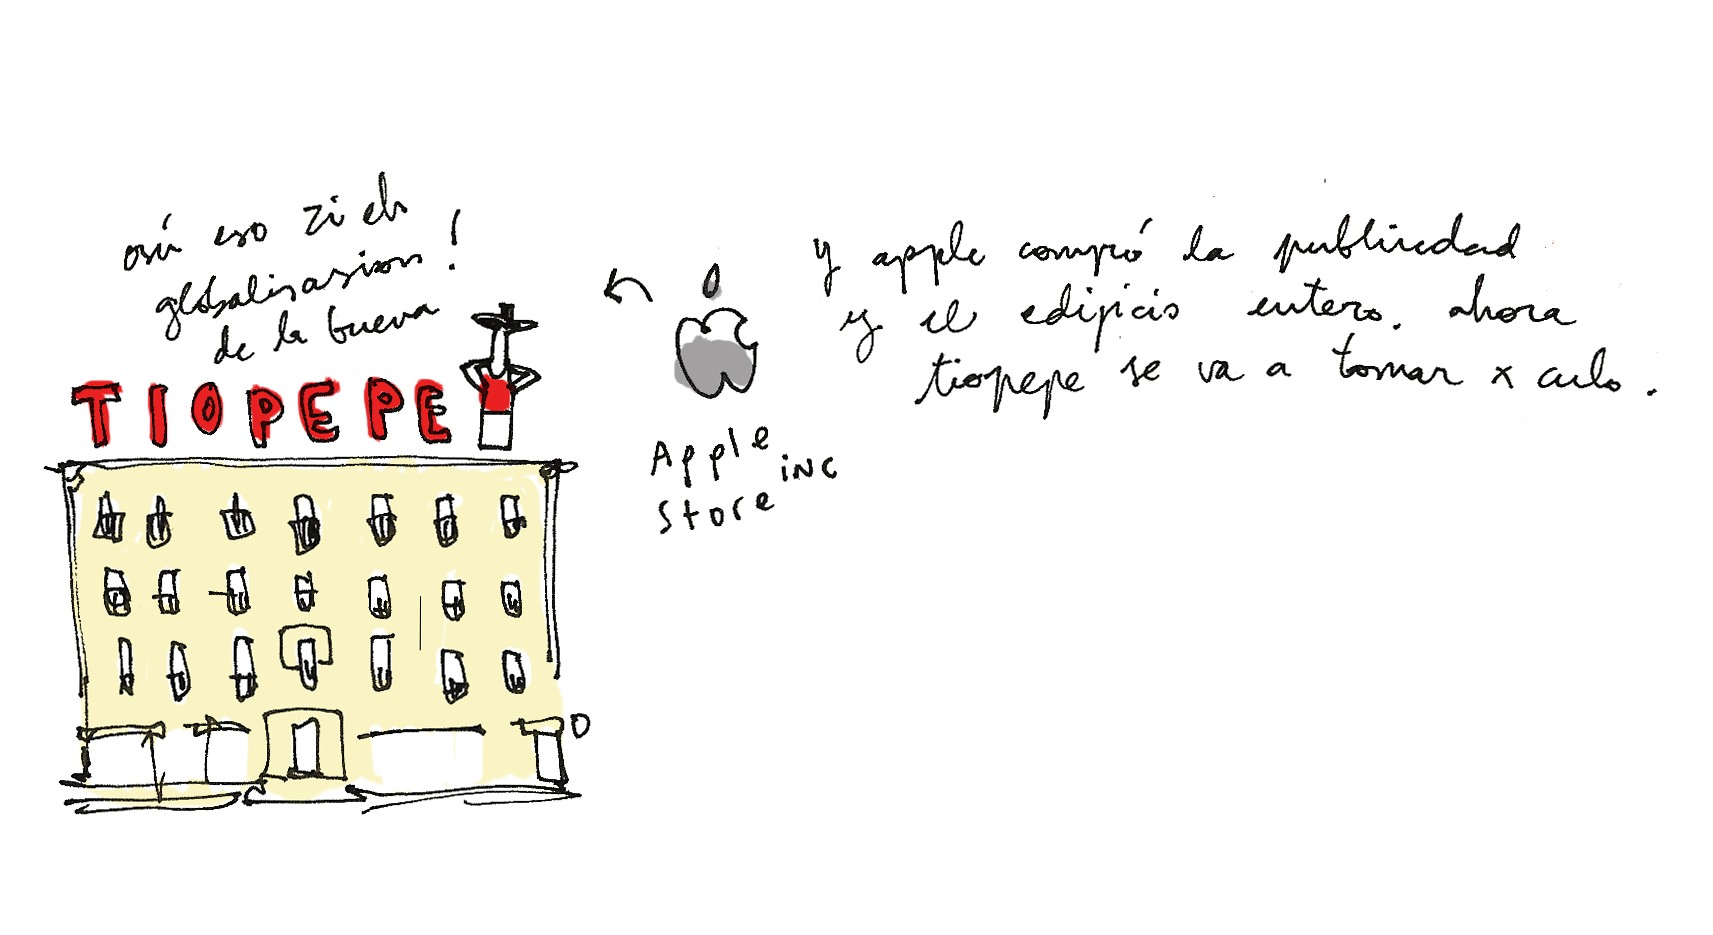 osú eso zi eh
globalisasion!
de la bueva
TIOPEPE
Apple
inc
Store
y apple compró la publicidad
y el edificio entero. ahora
tiopepe se va a tomar x culo.